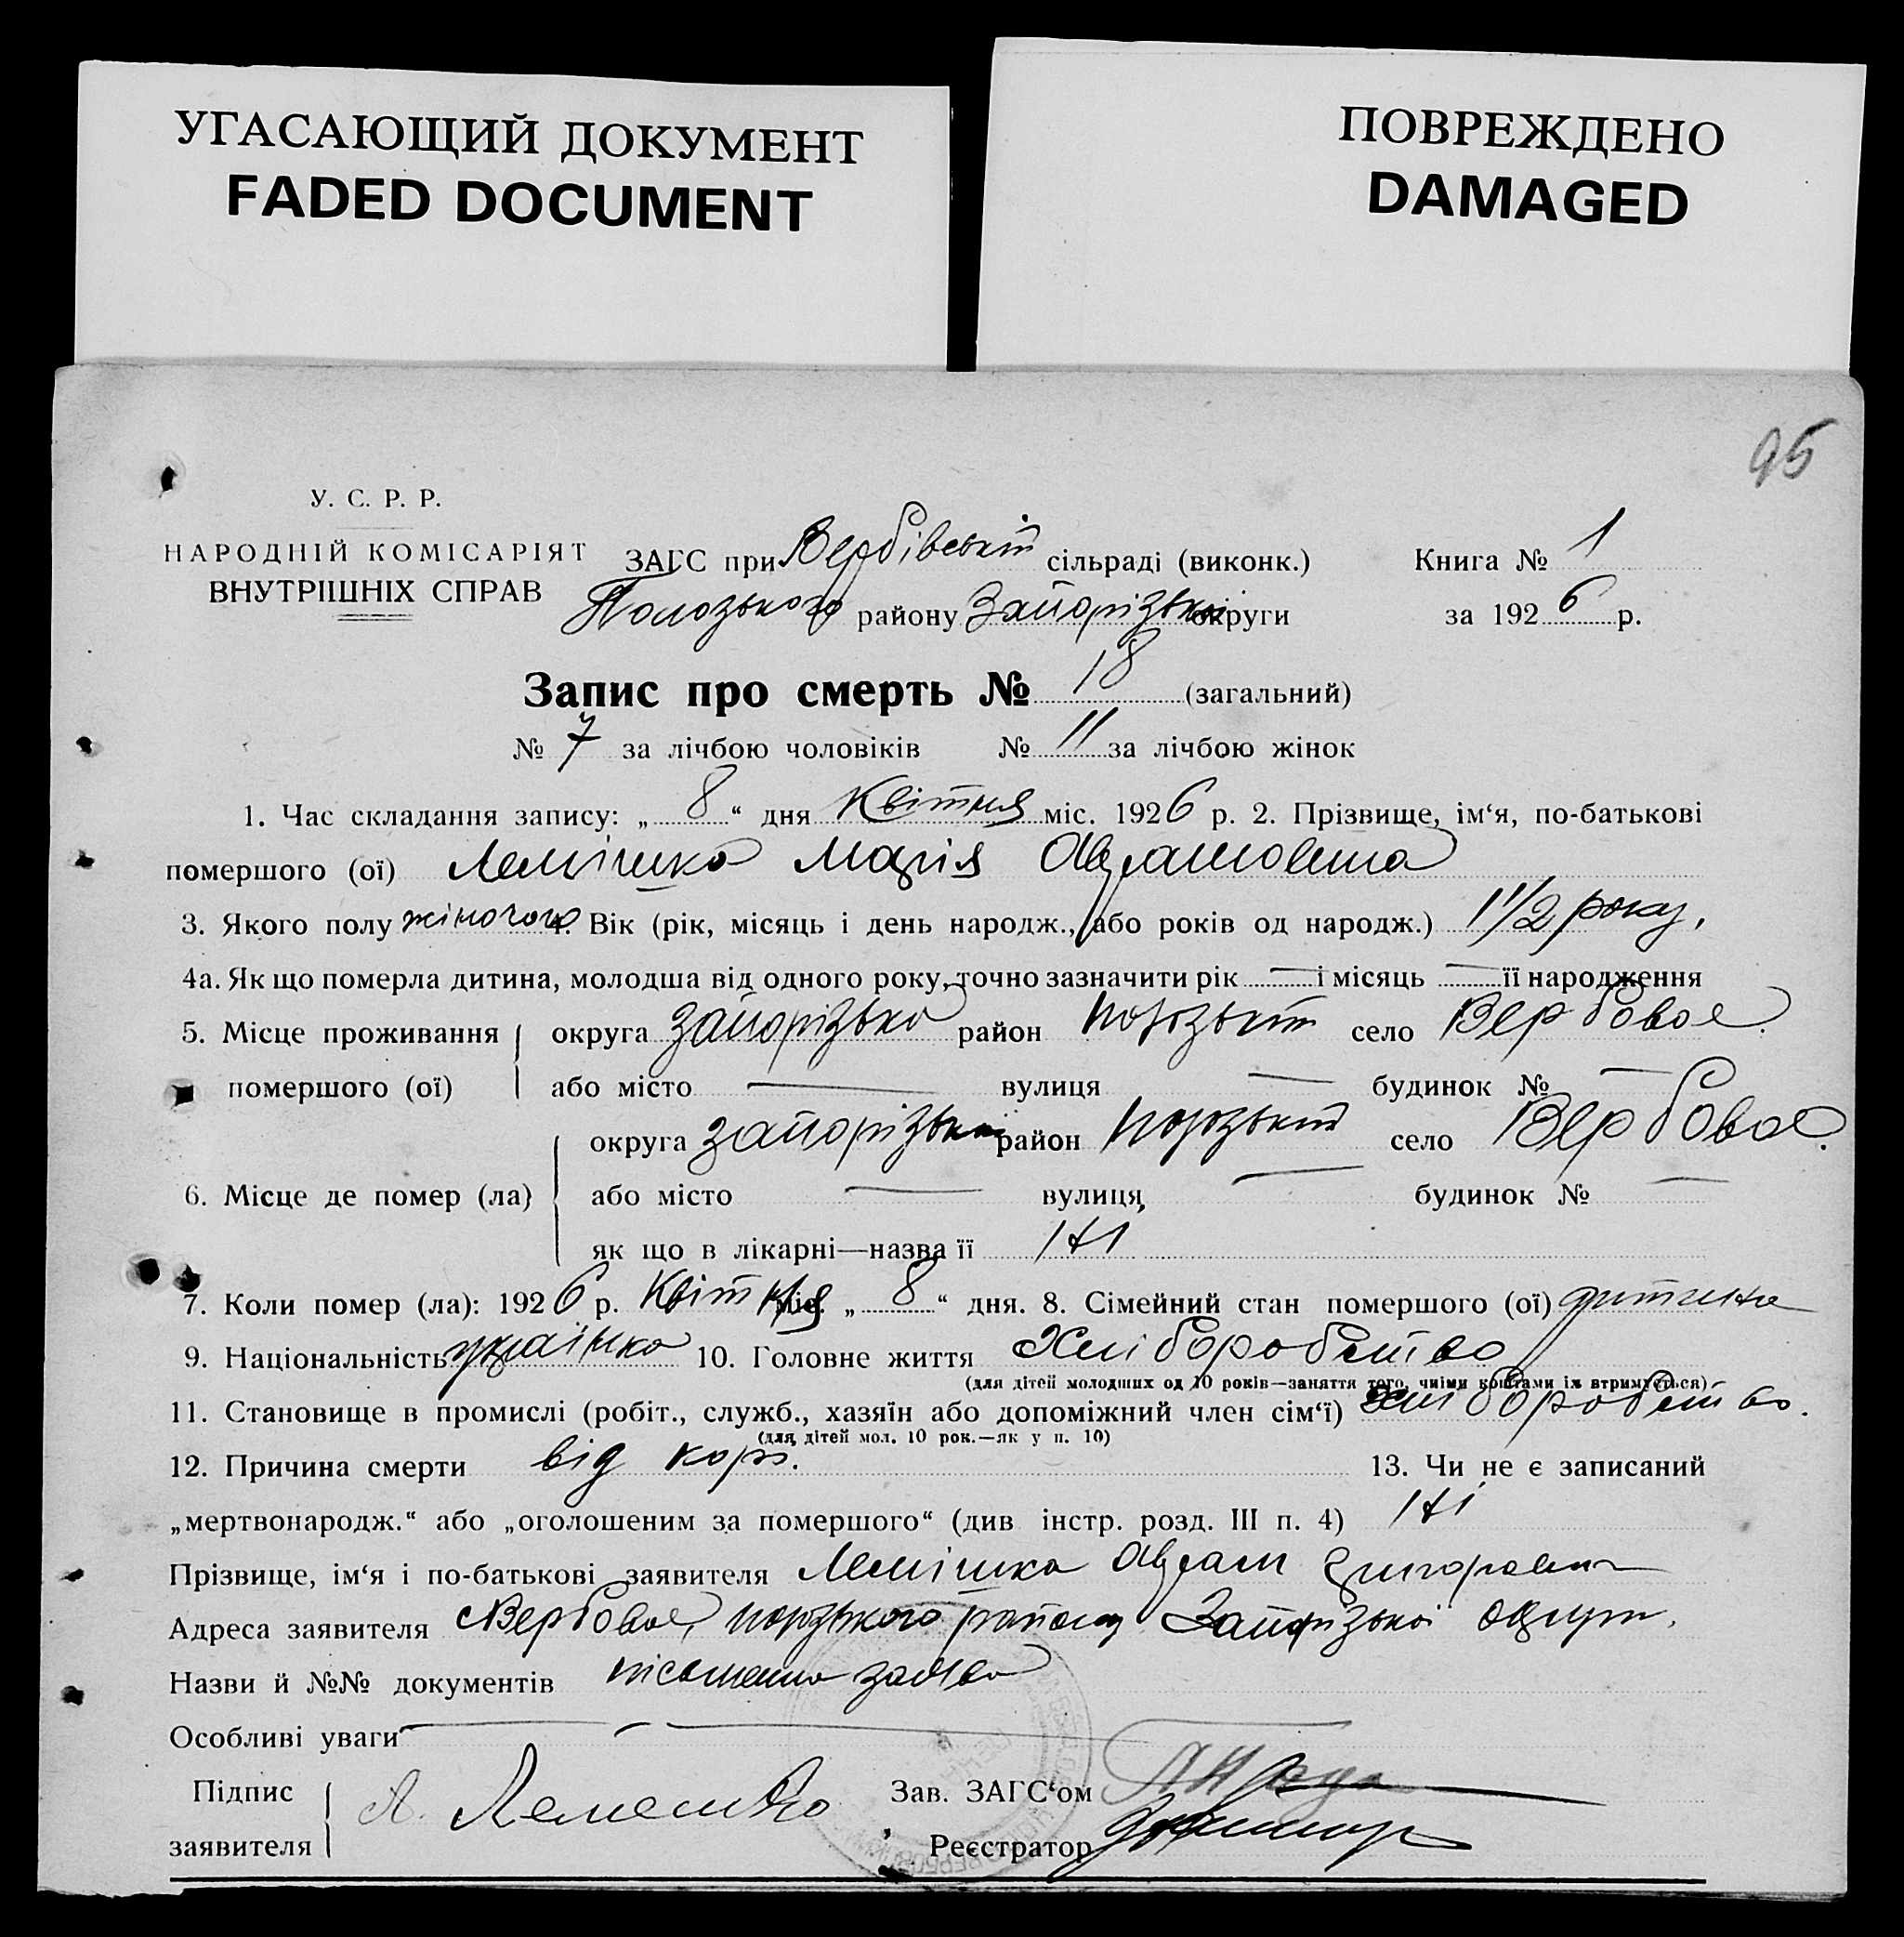 УГАСАЮЩИЙ ДОКУМЕНТ
FADED DOCUMENT
ПОВРЕЖДЕНО
DAMAGED
95
У. С. Р. Р.
НАРОДНІЙ КОМІСАРІЯТ
ВНУТРІШНІХ СПРАВ
ЗАГС при Вербівській сільраді (виконк.) Книга № 1
Пологського району Запорізької округи за 1926 р.
Запис про смерть № 18 (загальний)
№ 7 за лічбою чоловіків № 11 за лічбою жінок
1. Час складання запису: „ 8 “ дня Квітня міс. 1926 р. 2. Прізвище, ім‘я, по-батькові
помершого (ої) Лемішка Марія Аврамовна
3. Якого полу жіночого 4. Вік (рік, місяць і день народж., або років од народж.) 1 1/2 року.
4а. Як що померла дитина, молодша від одного року, точно зазначити рік — і місяць — її народження
5. Місце проживання округа Запорізька район село Вербовое.
помершого (ої) або місто — вулиця — будинок № —
округа Запорізька район село Вербовое.
6. Місце де помер (ла) або місто — вулиця — будинок № —
як що в лікарні—назва її ні
7. Коли помер (ла): 1926 р. Квітня міс. „ 8 “ дня. 8. Сімейний стан помершого (ої) дитина
9. Національність українка 10. Головне життя Хліборобство
(для дітей молодших од 10 років—заняття того, чиїми коштами їх втримується)
11. Становище в промислі (робіт., служб., хазяїн або допоміжний член сім‘ї) хліборобство.
(для дітей мол. 10 рок.—як у п. 10)
12. Причина смерти від кору. 13. Чи не є записаний
„мертвонародж.“ або „оголошеним за помершого“ (див інстр. розд. III п. 4) ні
Прізвище, ім‘я і по-батькові заявителя Лемішка Аврам Григорович
Адреса заявителя с Вербовое, району Запорізької округи.
Назви й №№ документів пісьменна заява
Особливі уваги —
Підпис заявителя А. Лемешко Зав. ЗАГС‘ом
Реєстратор